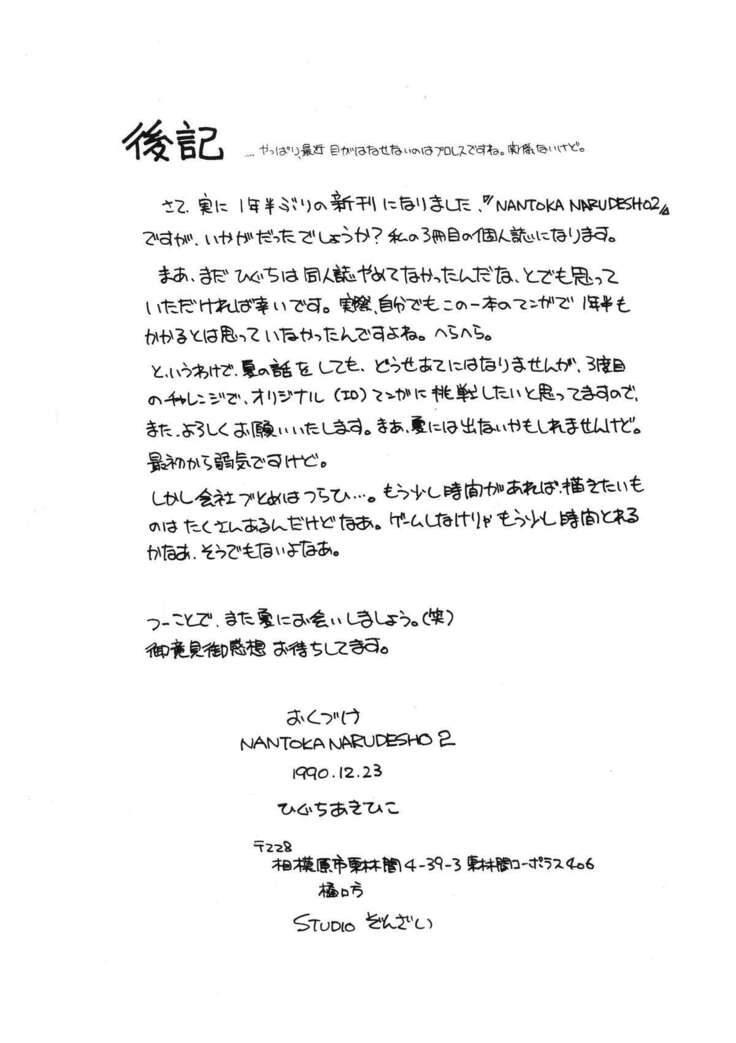 後記 ... やっぱり、最近 目がはなせないのはプロレスですね。実際ないけど。
さて、実に 1年半ぶりの新刊になりました、『NANTOKA NARUDESHO2』
ですが、いかがだったでしょうか？ 私の3冊目の個人誌になります。
まあ、まだ ひぐちは同人誌やめてなかったんだな、とでも思って
いただければ幸いです。実際、自分でもこの一本のマンガで 1年半も
かかるとは思っていなかったんですよね。へらへら。
というわけで、夏の話をしても、どうせあてにはなりませんが、3度目
のチャレンジで、オリジナル (ID) マンガに挑戦したいと思ってますので、
また、よろしくお願いいたします。まあ、夏には出ないかもしれませんけど。
最初から弱気ですけど。
しかし会社づとめはつらひ…。もう少し時間があれば、描きたいも
のはたくさんあるんだけどなあ。ゲームしなけりゃもう少し時間とれる
かなあ、そうでもないよなあ。
つーことで、また夏にお会いしましょう。(笑)
御意見御感想 お待ちしてます。
おくづけ
NANTOKA NARUDESHO 2
1990.12.23
ひぐちあきひこ
〒228
相模原市東林間4-39-3 東林間コーポラス406
樋口方
STUDIO ぞんざい